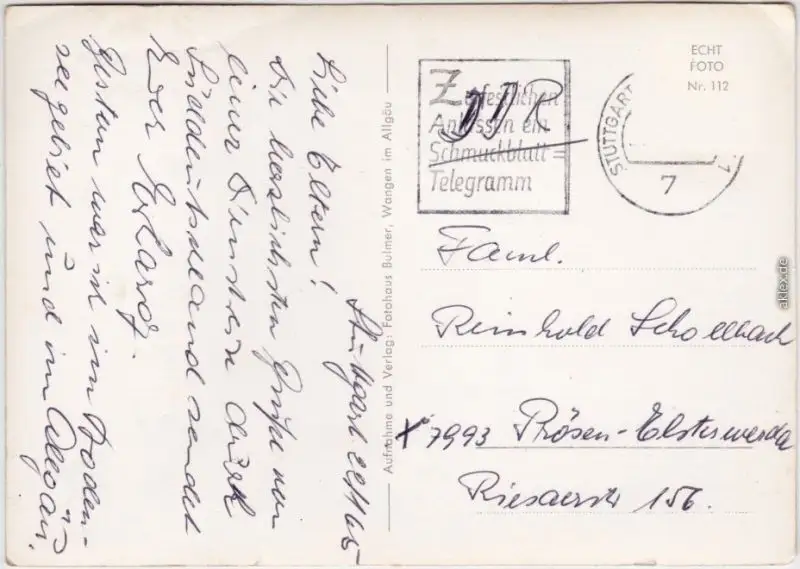 Stuttgart 22.11.65
Liebe Eltern!
Die herzlichsten Grüße von
einer Dienstreise durch
Süddeutschland sendet
Euer Erhard.
Gestern war ich im Boden-
seegebiet und im Allgäu.
Aufnahme und Verlag: Fotohaus Bulmer, Wangen im Allgäu
Zu festlichen
Anlässen ein
Schmuckblatt=
Telegramm
DDR
STUTTGART
7
ECHT
FOTO
Nr. 112
Faml.
Reinhold Schollbach
X 7993 Prösen-Elsterwerda
Riesaerstr 156.
aklex.de